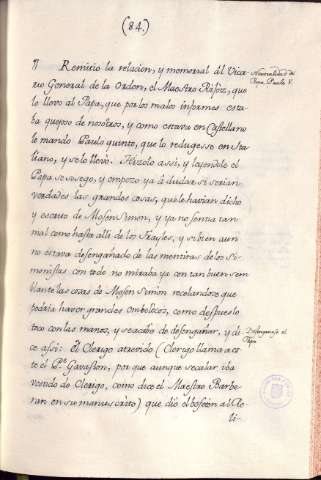 (84.)
¶ Remitio la relacion, y memorial al Vica-
rio General de la Orden, el Maestro Ráfoiz, que
lo llevo al Papa, que por los malos informes esta-
ba quejoso de nosotros, y como estava en Castellano
le mando Paulo quinto, que lo redugesse en Ita-
liano, y selo llevò. Hizolo assi, y leyendole el
Papa se sosego, y empezo ya â dudar si serian
verdades las grandes cosas, que le havian dicho
y escrito de Mosen Simon, y ya no sentia tan
mal como hasta alli de los Frayles, y si bien aun
no estava desengañado de las mentiras de los Si-
monistas con todo no miraba ya con tan buen sem-
blante las cosas de Mosen Simon recelandose que
podria haver grandes embelecos, como despues lo
toco con las manos, y se acabò de desengañar, y di-
ce assi: El Clerigo atrevido (Clerigo llama a es-
te el P.e Gavaston, por que aunque secular iba
vestido de Clerigo, como dice el Maestro Barbe-
ran en su manuscrito) que dio el bofeton al Re-
li-
Neutralidad de
Papa Paulo V.
Desengañase el
Papa